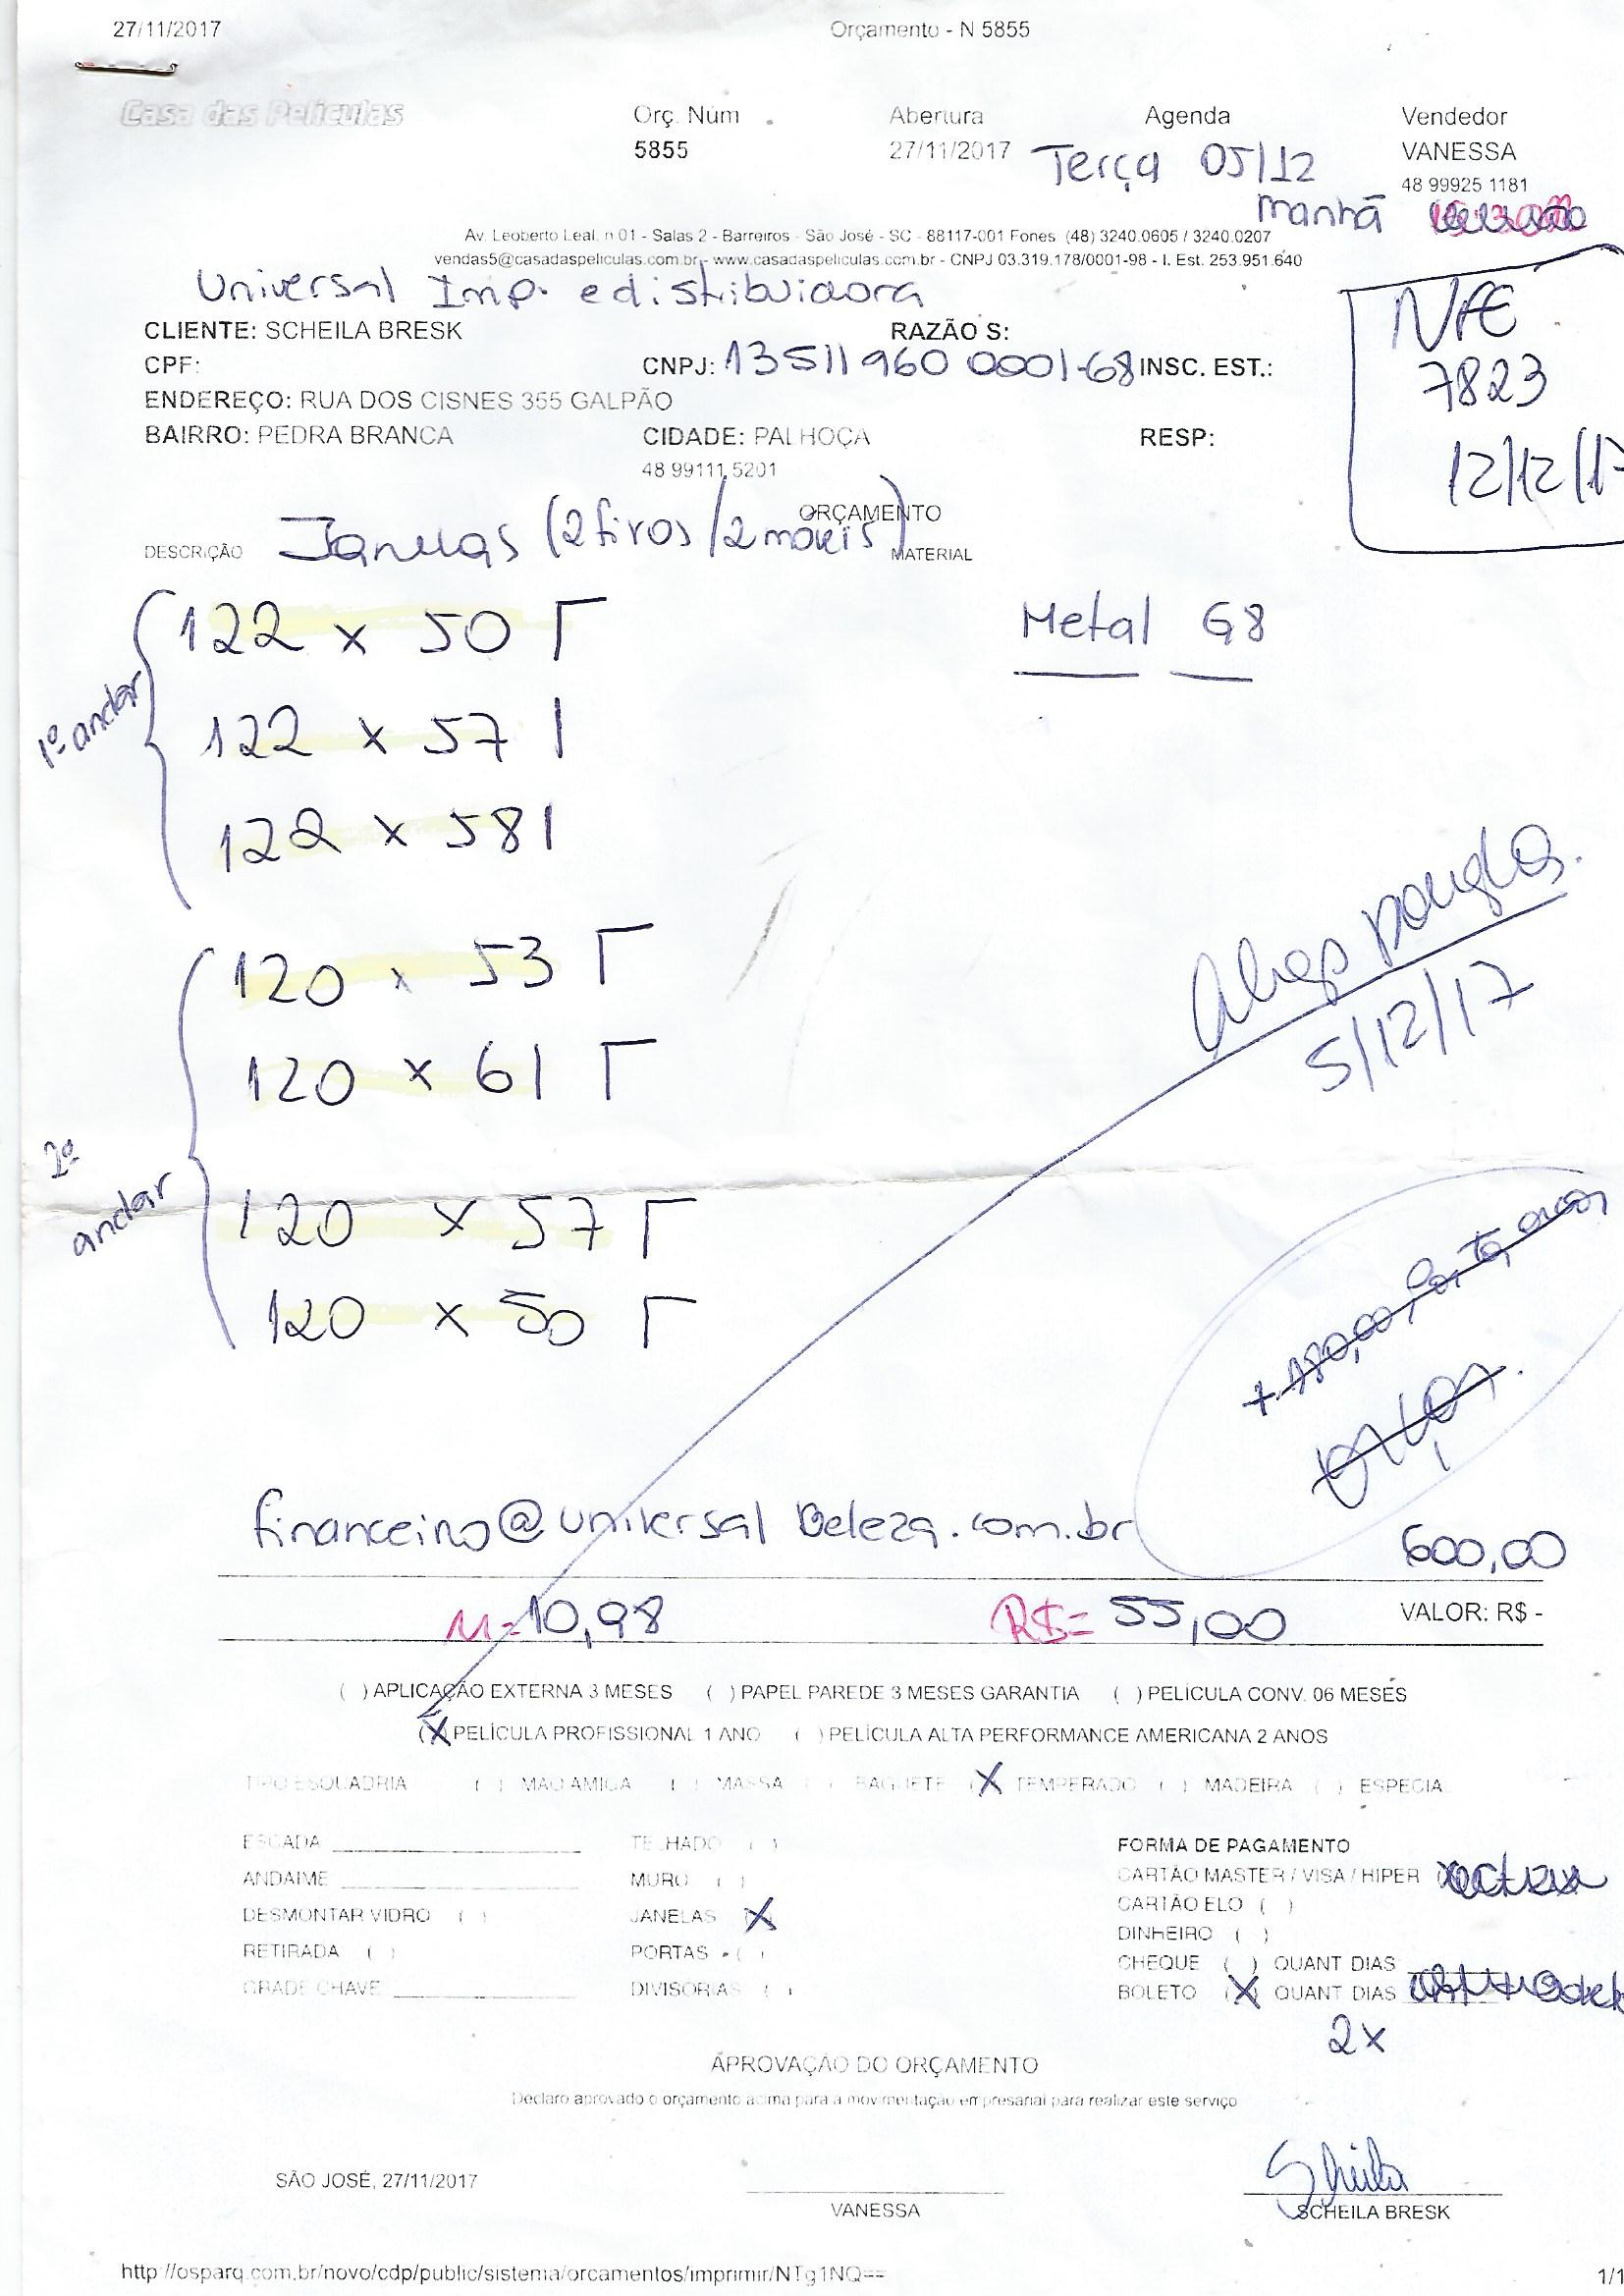 27/11/2017 Orçamento - N 5855
Casa das Películas Orç. Núm Abertura Agenda Vendedor
5855 27/11/2017 Terça 05/12 VANESSA
48 99925 1181
manhã
Av. Leoberto Leal, n 01 - Salas 2 - Barreiros - São José - SC - 88117-001 Fones (48) 3240.0605 / 3240.0207
vendas5@casadaspeliculas.com.br - www.casadaspeliculas.com.br - CNPJ 03.319.178/0001-98 - I. Est. 253.951.640
Universal Imp. e distribuidora
NFE
7823
12/12/17
CLIENTE: SCHEILA BRESK RAZÃO S:
CPF: CNPJ: 13511960 0001-68 INSC. EST.:
ENDEREÇO: RUA DOS CISNES 355 GALPÃO
BAIRRO: PEDRA BRANCA CIDADE: PALHOÇA RESP:
48 99111 5201
ORÇAMENTO
DESCRIÇÃO Janelas (2 fixos / 2 móveis) MATERIAL
1º andar
122 x 50 Γ Metal G8
122 x 57 |
122 x 58 |
2º andar
120 x 53 Γ
120 x 61 Γ
120 x 57 Γ
120 x 50 Γ
5/12/17
+ 180,00
financeiro@universalbeleza.com.br
600,00
M=10,98 R$= 55,00 VALOR: R$ -
( ) APLICAÇÃO EXTERNA 3 MESES ( ) PAPEL PAREDE 3 MESES GARANTIA ( ) PELÍCULA CONV. 06 MESES
(X) PELÍCULA PROFISSIONAL 1 ANO ( ) PELÍCULA ALTA PERFORMANCE AMERICANA 2 ANOS
TIPO ESQUADRIA ( ) MAO AMIGA ( ) MASSA ( ) BAGUETE (X) TEMPERADO ( ) MADEIRA ( ) ESPECIA
ESCADA TELHADO ( ) FORMA DE PAGAMENTO
ANDAIME MURO ( ) CARTÃO MASTER / VISA / HIPER
DESMONTAR VIDRO ( ) JANELAS (X) CARTÃO ELO ( )
RETIRADA ( ) PORTAS ( ) DINHEIRO ( )
GRADE CHAVE DIVISORIAS ( ) CHEQUE ( ) QUANT DIAS
BOLETO (X) QUANT DIAS
2x
APROVAÇÃO DO ORÇAMENTO
Declaro aprovado o orçamento acima para a movimentação empresarial para realizar este serviço
SÃO JOSÉ, 27/11/2017 Sheila
VANESSA SCHEILA BRESK
http://osparq.com.br/novo/cdp/public/sistema/orcamentos/imprimir/NTg1NQ== 1/1